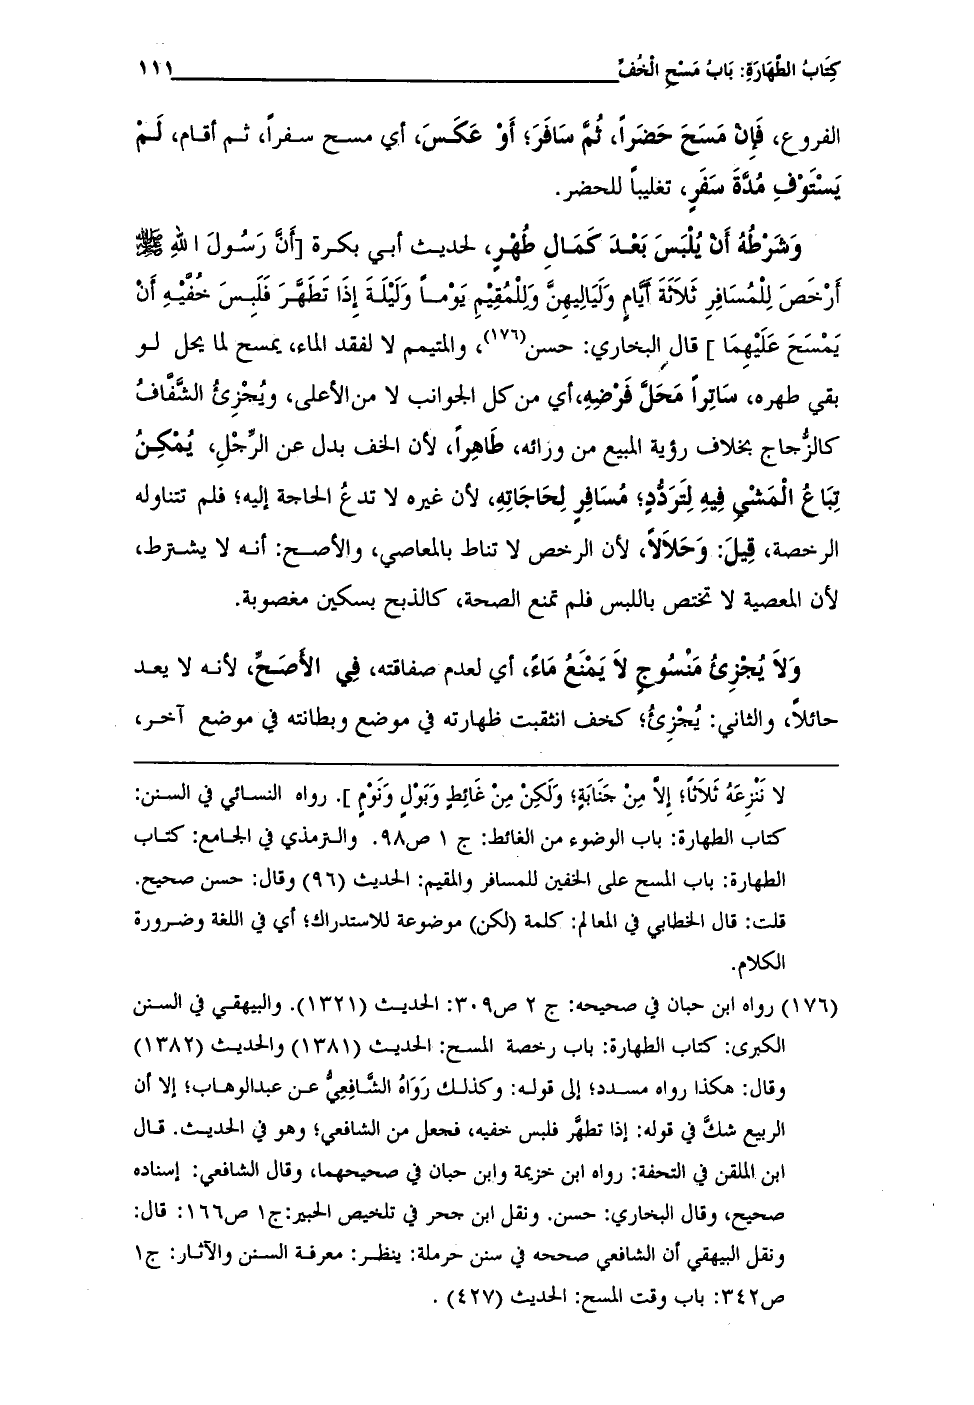 كِتَابُ الطَّهَارَةِ: بَابُ مَسْحِ الْخُفِّ ١١١
الفروع، فَإِنْ مَسَحَ حَضَراً، ثُمَّ سَافَرَ؛ أَوْ عَكَسَ، أي مسح سفراً، ثم أقام، لَمْ
يَسْتَوْفِ مُدَّةَ سَفَرٍ، تغليباً للحضر.
وَشَرْطُهُ أَنْ يُلْبَسَ بَعْدَ كَمَالِ طُهْرٍ، لحديث أبي بكرة [أَنَّ رَسُولَ اللهِ ﷺ
أَرْخَصَ لِلْمُسَافِرِ ثَلاَثَةَ أَيَّامٍ وَلَيَالِيهِنَّ وَلِلْمُقِيْمِ يَوْمـاً وَلَيْلَةَ إِذَا تَطَهَّرَ فَلَبِسَ خُفَّيْهِ أَنْ
يَمْسَحَ عَلَيْهِمَا ] قال البخاري: حسن(١٧٦)، والمتيمم لا لفقد الماء، يمسح لما يحل لو
بقي طهره، سَاتِراً مَحَلَّ فَرْضِهِ، أي من كل الجوانب لا من الأعلى، ويُجْزِئُ الشَّفَّافُ
كالزُّجاج بخلاف رؤية المبيع من ورائه، طَاهِراً، لأن الخف بدل عن الرِّجْلِ، يُمْكِنُ
تِبَاعُ الْمَشْيِ فِيهِ لِتَرَدُّدِ؛ مُسَافِرٍ لِحَاجَاتِهِ، لأن غيره لا تدعُ الحاجة إليه؛ فلم تتناوله
الرخصة، قِيلَ: وَحَلاَلاً، لأن الرخص لا تناط بالمعاصي، والأصح: أنه لا يشترط،
لأن المعصية لا تختص باللبس فلم تمنع الصحة، كالذبح بسكين مغصوبة.
وَلاَ يُجْزِئُ مَنْسُوجٍ لاَ يَمْنَعُ مَاءً، أي لعدم صفاقته، فِي الأَصَحِّ، لأنه لا يعد
حائلاً، والثاني: يُجْزِئُ؛ كخف انثقبت ظهارته في موضع وبطانته في موضع آخر،
لا نَنْزِعَهُ ثَلاَثاً؛ إِلاَّ مِنْ جَنَابَةٍ؛ وَلَكِنْ مِنْ غَائِطٍ وَبَوْلٍ وَنَوْمٍ ]. رواه النسائي في السنن:
كتاب الطهارة: باب الوضوء من الغائط: ج ١ ص٩٨. والترمذي في الجامع: كتاب
الطهارة: باب المسح على الخفين للمسافر والمقيم: الحديث (٩٦) وقال: حسن صحيح.
قلت: قال الخطابي في المعالم: كلمة (لكن) موضوعة للاستدراك؛ أي في اللغة وضرورة
الكلام.
(١٧٦) رواه ابن حبان في صحيحه: ج ٢ ص٣٠٩: الحديث (١٣٢١). والبيهقي في السنن
الكبرى: كتاب الطهارة: باب رخصة المسح: الحديث (١٣٨١) والحديث (١٣٨٢)
وقال: هكذا رواه مسدد؛ إلى قوله: وكذلك رَوَاهُ الشَّافِعِيُّ عن عبدالوهاب؛ إلا أن
الربيع شكَّ في قوله: إذا تطهَّر فلبس خفيه، فجعل من الشافعي؛ وهو في الحديث. قال
ابن الملقن في التحفة: رواه ابن خزيمة وابن حبان في صحيحهما، وقال الشافعي: إسناده
صحيح، وقال البخاري: حسن. ونقل ابن حجر في تلخيص الحبير:ج١ ص١٦٦: قال:
ونقل البيهقي أن الشافعي صححه في سنن حرملة: ينظر: معرفة السنن والآثار: ج١
ص٣٤٢: باب وقت المسح: الحديث (٤٢٧) .